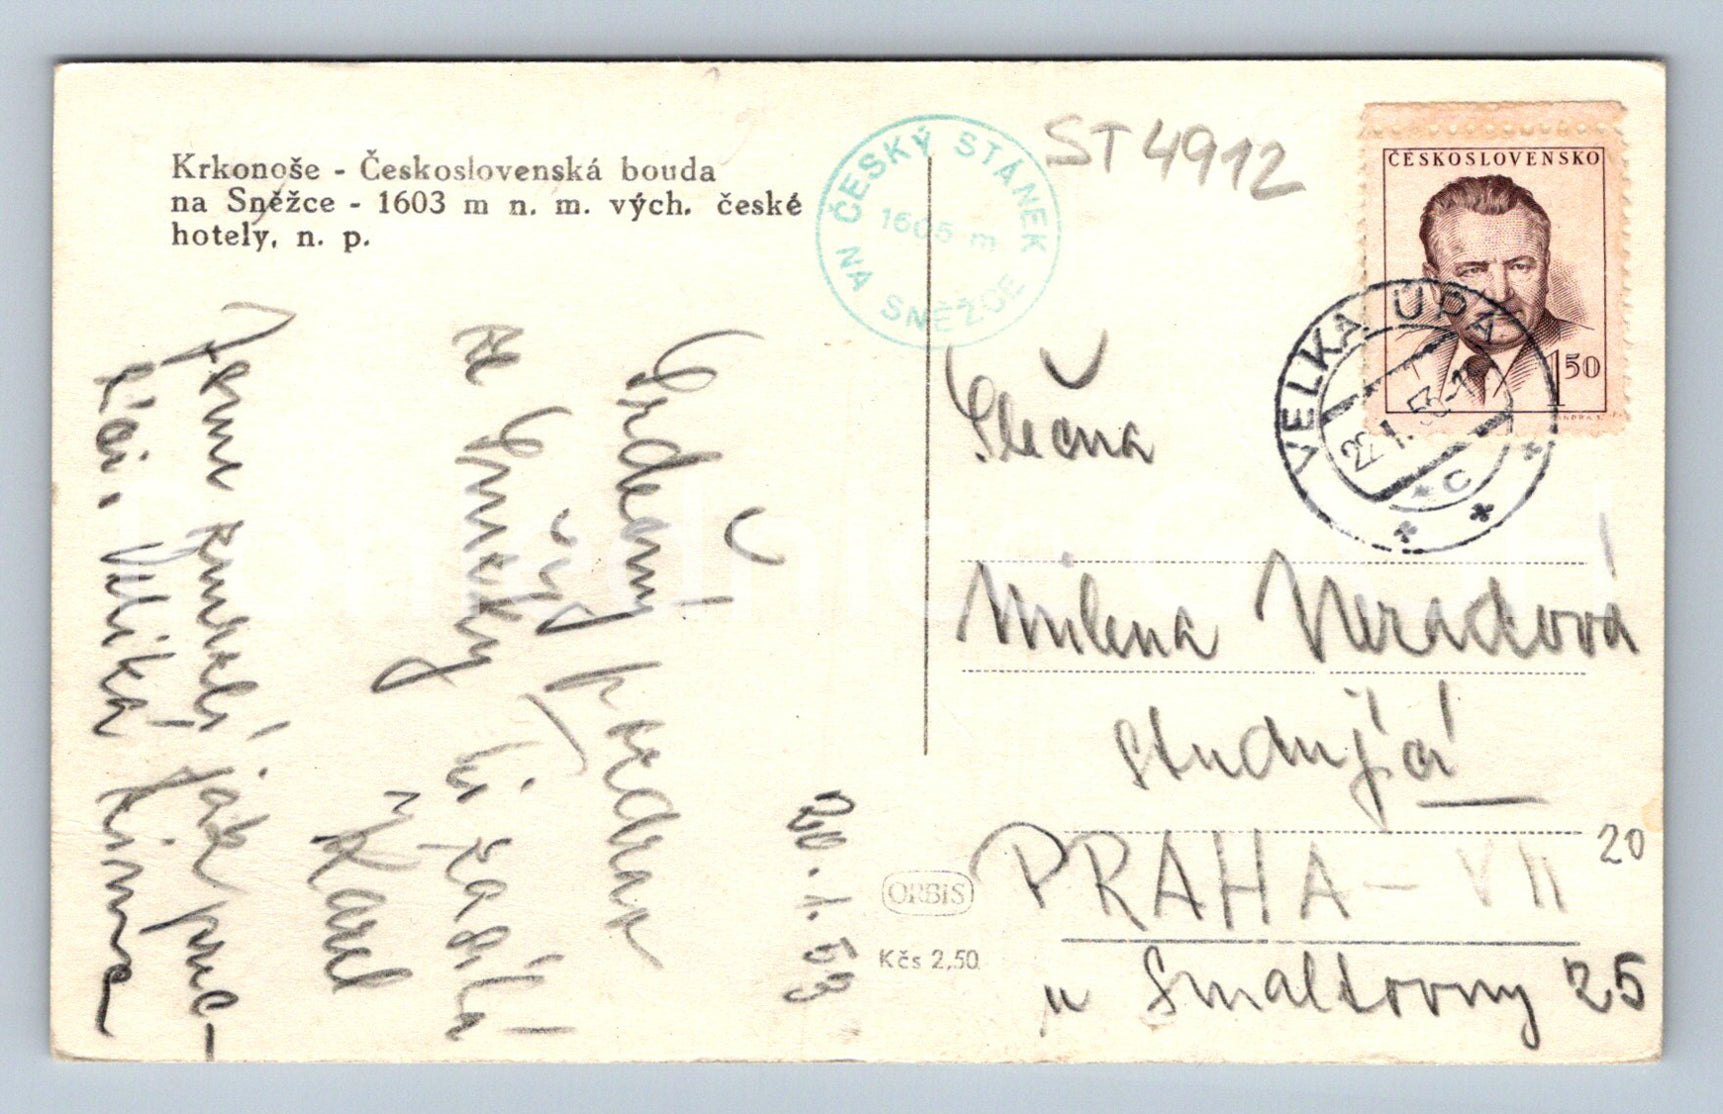 Krkonoše - Československá bouda
na Sněžce - 1603 m n. m. vých. české
hotely, n. p.
ČESKÝ STÁNEK
1605 m
NA SNĚŽCE
ST 4912
ČESKOSLOVENSKO
1 50
VELKÁ ÚPA
22.I.53-1
C
20. 1. 53
Srdečný pozdrav
ze Sněžky
Karel
Jsem zmrzlý jak
Velká zima
Slečna
Milena Neradová
studující
PRAHA - VII
20
u Smaltovny 25
ORBIS
Kčs 2,50